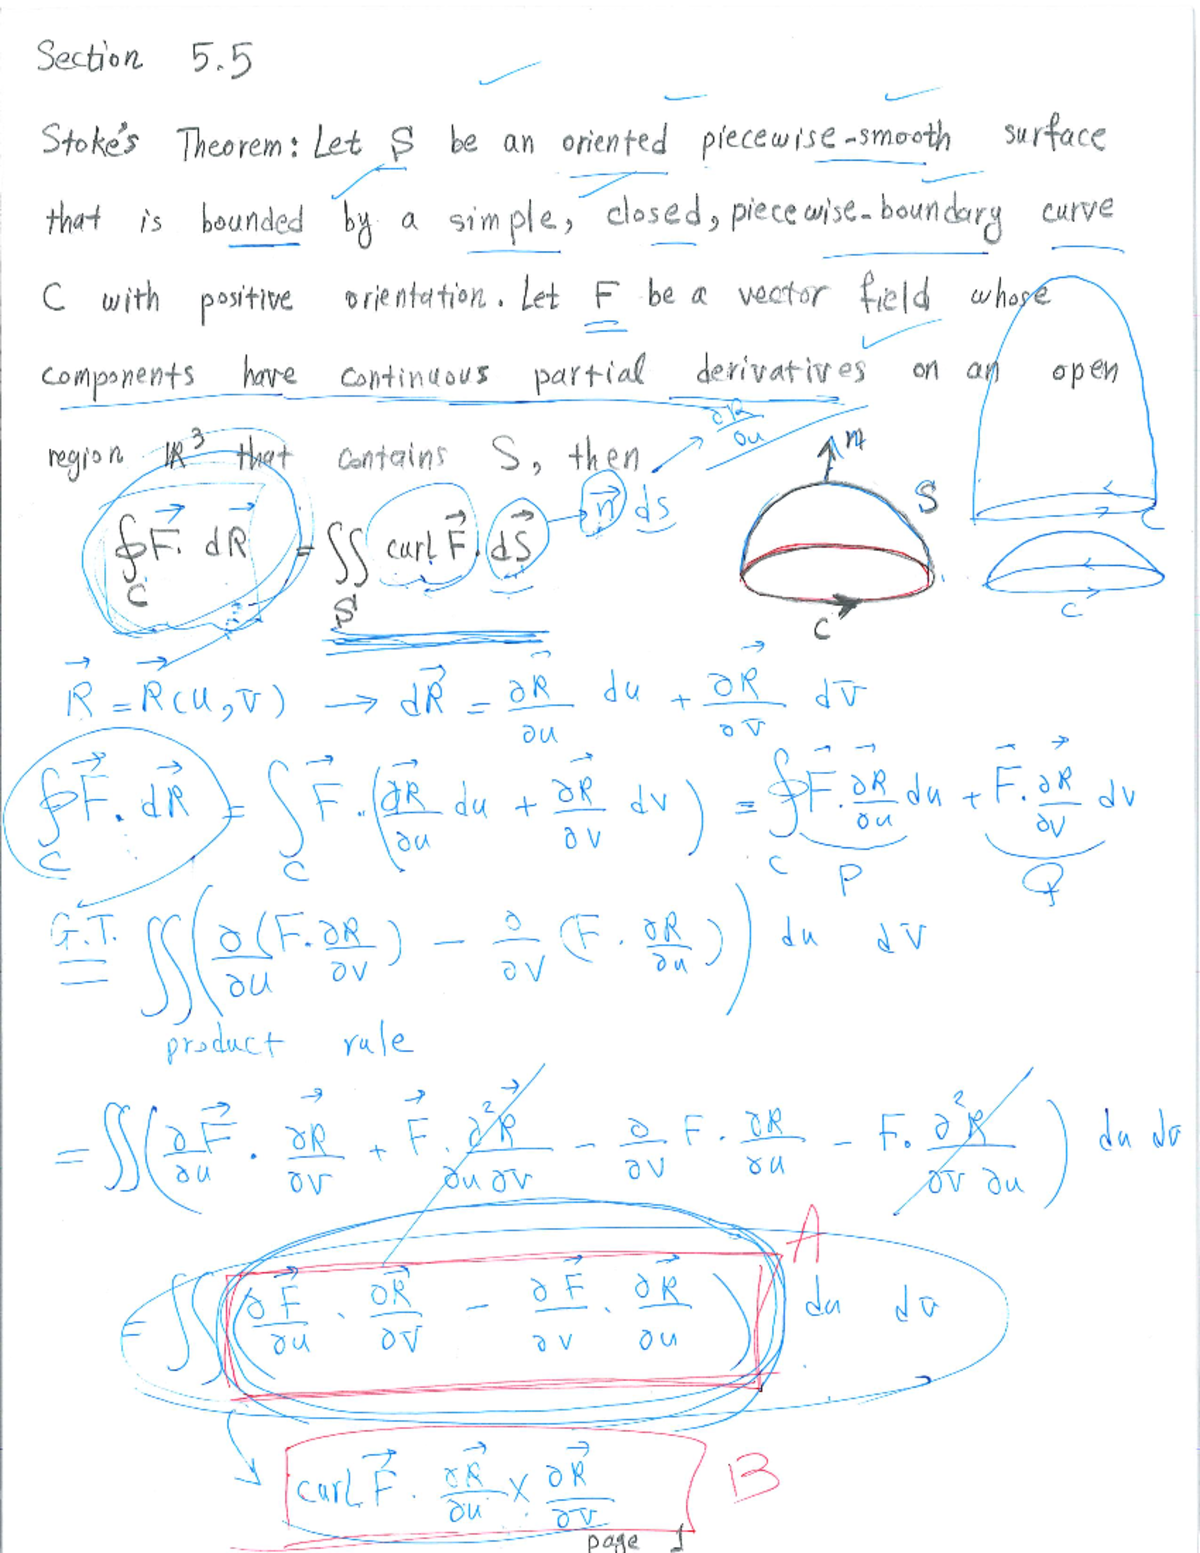 Section 5.5
Stoke's Theorem: Let S be an oriented piecewise-smooth surface
that is bounded by a simple, closed, piecewise-boundary curve
C with positive orientation. Let F be a vector field whose
components have continuous partial derivatives on an open
region ℝ³ that contains S, then ∂R/∂u
∮_C F⃗ · dR⃗ = ∬_S curl F⃗ · dS⃗ → n⃗ ds
n S C C C
R⃗ = R⃗(u,v) → dR⃗ = ∂R⃗/∂u du + ∂R⃗/∂v dv
∮_C F⃗ · dR⃗ = ∫_C F⃗ · (∂R⃗/∂u du + ∂R⃗/∂v dv) = ∮_C F⃗ · ∂R⃗/∂u du + F⃗ · ∂R⃗/∂v dv
P Q
G.T. = ∬ (∂/∂u (F · ∂R/∂v) − ∂/∂v (F · ∂R/∂u)) du dv
product rule
= ∬ (∂F⃗/∂u · ∂R⃗/∂v + F⃗ · ∂²R⃗/∂u∂v − ∂/∂v F · ∂R/∂u − F · ∂²R/∂v∂u) du dv
= ∬ (∂F⃗/∂u · ∂R⃗/∂v − ∂F⃗/∂v · ∂R⃗/∂u) du dv A
curl F⃗ · ∂R⃗/∂u × ∂R⃗/∂v B
page 1